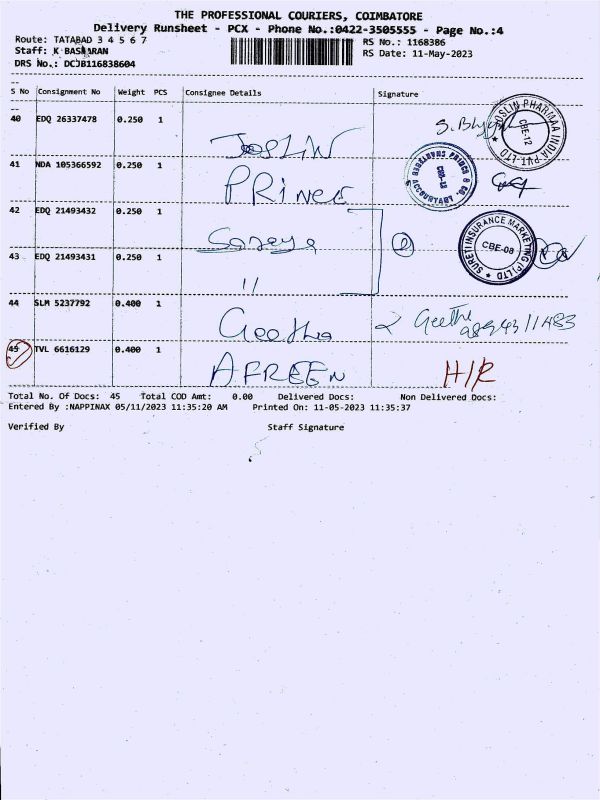 THE PROFESSIONAL COURIERS, COIMBATORE
Delivery Runsheet - PCX - Phone No.:0422-3505555 - Page No.:4
Route: TATABAD 3 4 5 6 7
RS No.: 1168386
Staff: K BASKARAN
RS Date: 11-May-2023
DRS No.: DCJB116838604
S No Consignment No Weight PCS Consignee Details Signature
40 EDQ 26337478 0.250 1
JOSLIN
JOSLIN PHARMAA INDIA PVT-LTD
CBE-12
41 NDA 105366592 0.250 1
PRINCE
CHARTERED ACCOUNTANT
42 EDQ 21493432 0.250 1
2
SURETI INSURANCE MARKETING (P) LTD
CBE-08
43 EDQ 21493431 0.250 1
"
44 SLM 5237792 0.400 1
Geetha
Geetha
45 TVL 6616129 0.400 1
AFREEN
H/R
Total No. Of Docs: 45 Total COD Amt: 0.00 Delivered Docs: Non Delivered Docs:
Entered By :NAPPINAX 05/11/2023 11:35:20 AM Printed On: 11-05-2023 11:35:37
Verified By Staff Signature